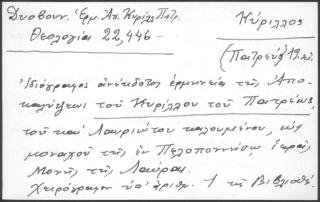 Δυοβουν. Ἑρμ. Ἀπ. Κυρίλλ. Πατρ.
Θεολογία 22,446 —
Κύριλλος
(Πατρεύς) 19. αἰ.
Ἰδιόγραφος ἀνέκδοτος ἑρμηνεία τῆς Ἀπο-
καλύψεως τοῦ Κυρίλλου τοῦ Πατρέως,
τοῦ καὶ Λαυριώτου καλουμένου, ὡς
μοναχοῦ τῆς ἐν Πελοποννήσῳ ἱερᾶς
Μονῆς τῆς Λαύρας.
Χειρόγραφον ὑπ' ἀριθμ. 1 τῆς Βιβλιοθ.